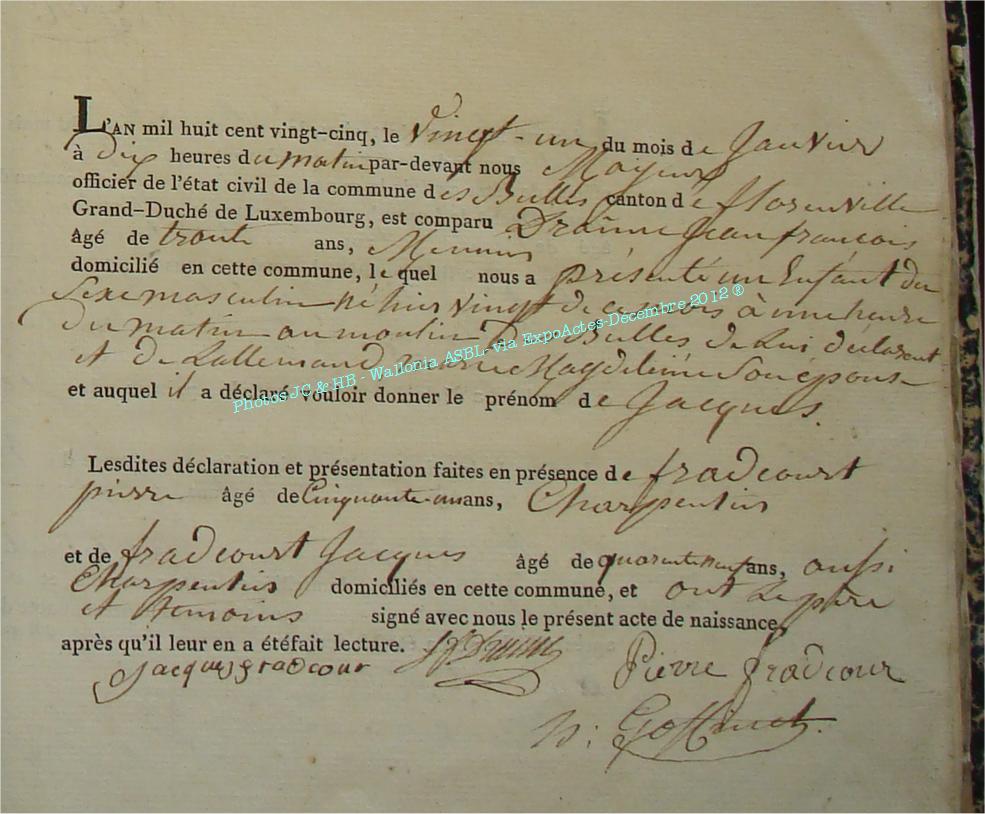 L'AN mil huit cent vingt-cinq, le vingt-un du mois de Janvier
à dix heures du matin par-devant nous Mayeur
officier de l'état civil de la commune des Bulles canton de florenville
Grand-Duché de Luxembourg, est comparu Draime Jean françois
âgé de trente ans, Meunier
domicilié en cette commune, le quel nous a présenté un Enfant du
Sexe masculin né hier vingt de ce mois à une heure
du matin au moulin Des Bulles de Lui declarant
et de Lallemand Marie Magdeleine Son épouse
et auquel il a déclaré vouloir donner le prénom de Jacques.
Photos JC & HB - Wallonia ASBL- via ExpoActes-Decembre 2012 ®
Lesdites déclaration et présentation faites en présence de fradcourt
pierre âgé de Cinquante-un ans, Charpentier
et de fradcourt Jacques âgé de quarante neuf ans, aussi
Charpentier domiciliés en cette commune, et ont Le père
et temoins signé avec nous le présent acte de naissance,
après qu'il leur en a été fait lecture.
Jacques fradcour Pierre fradcour
Goffinet